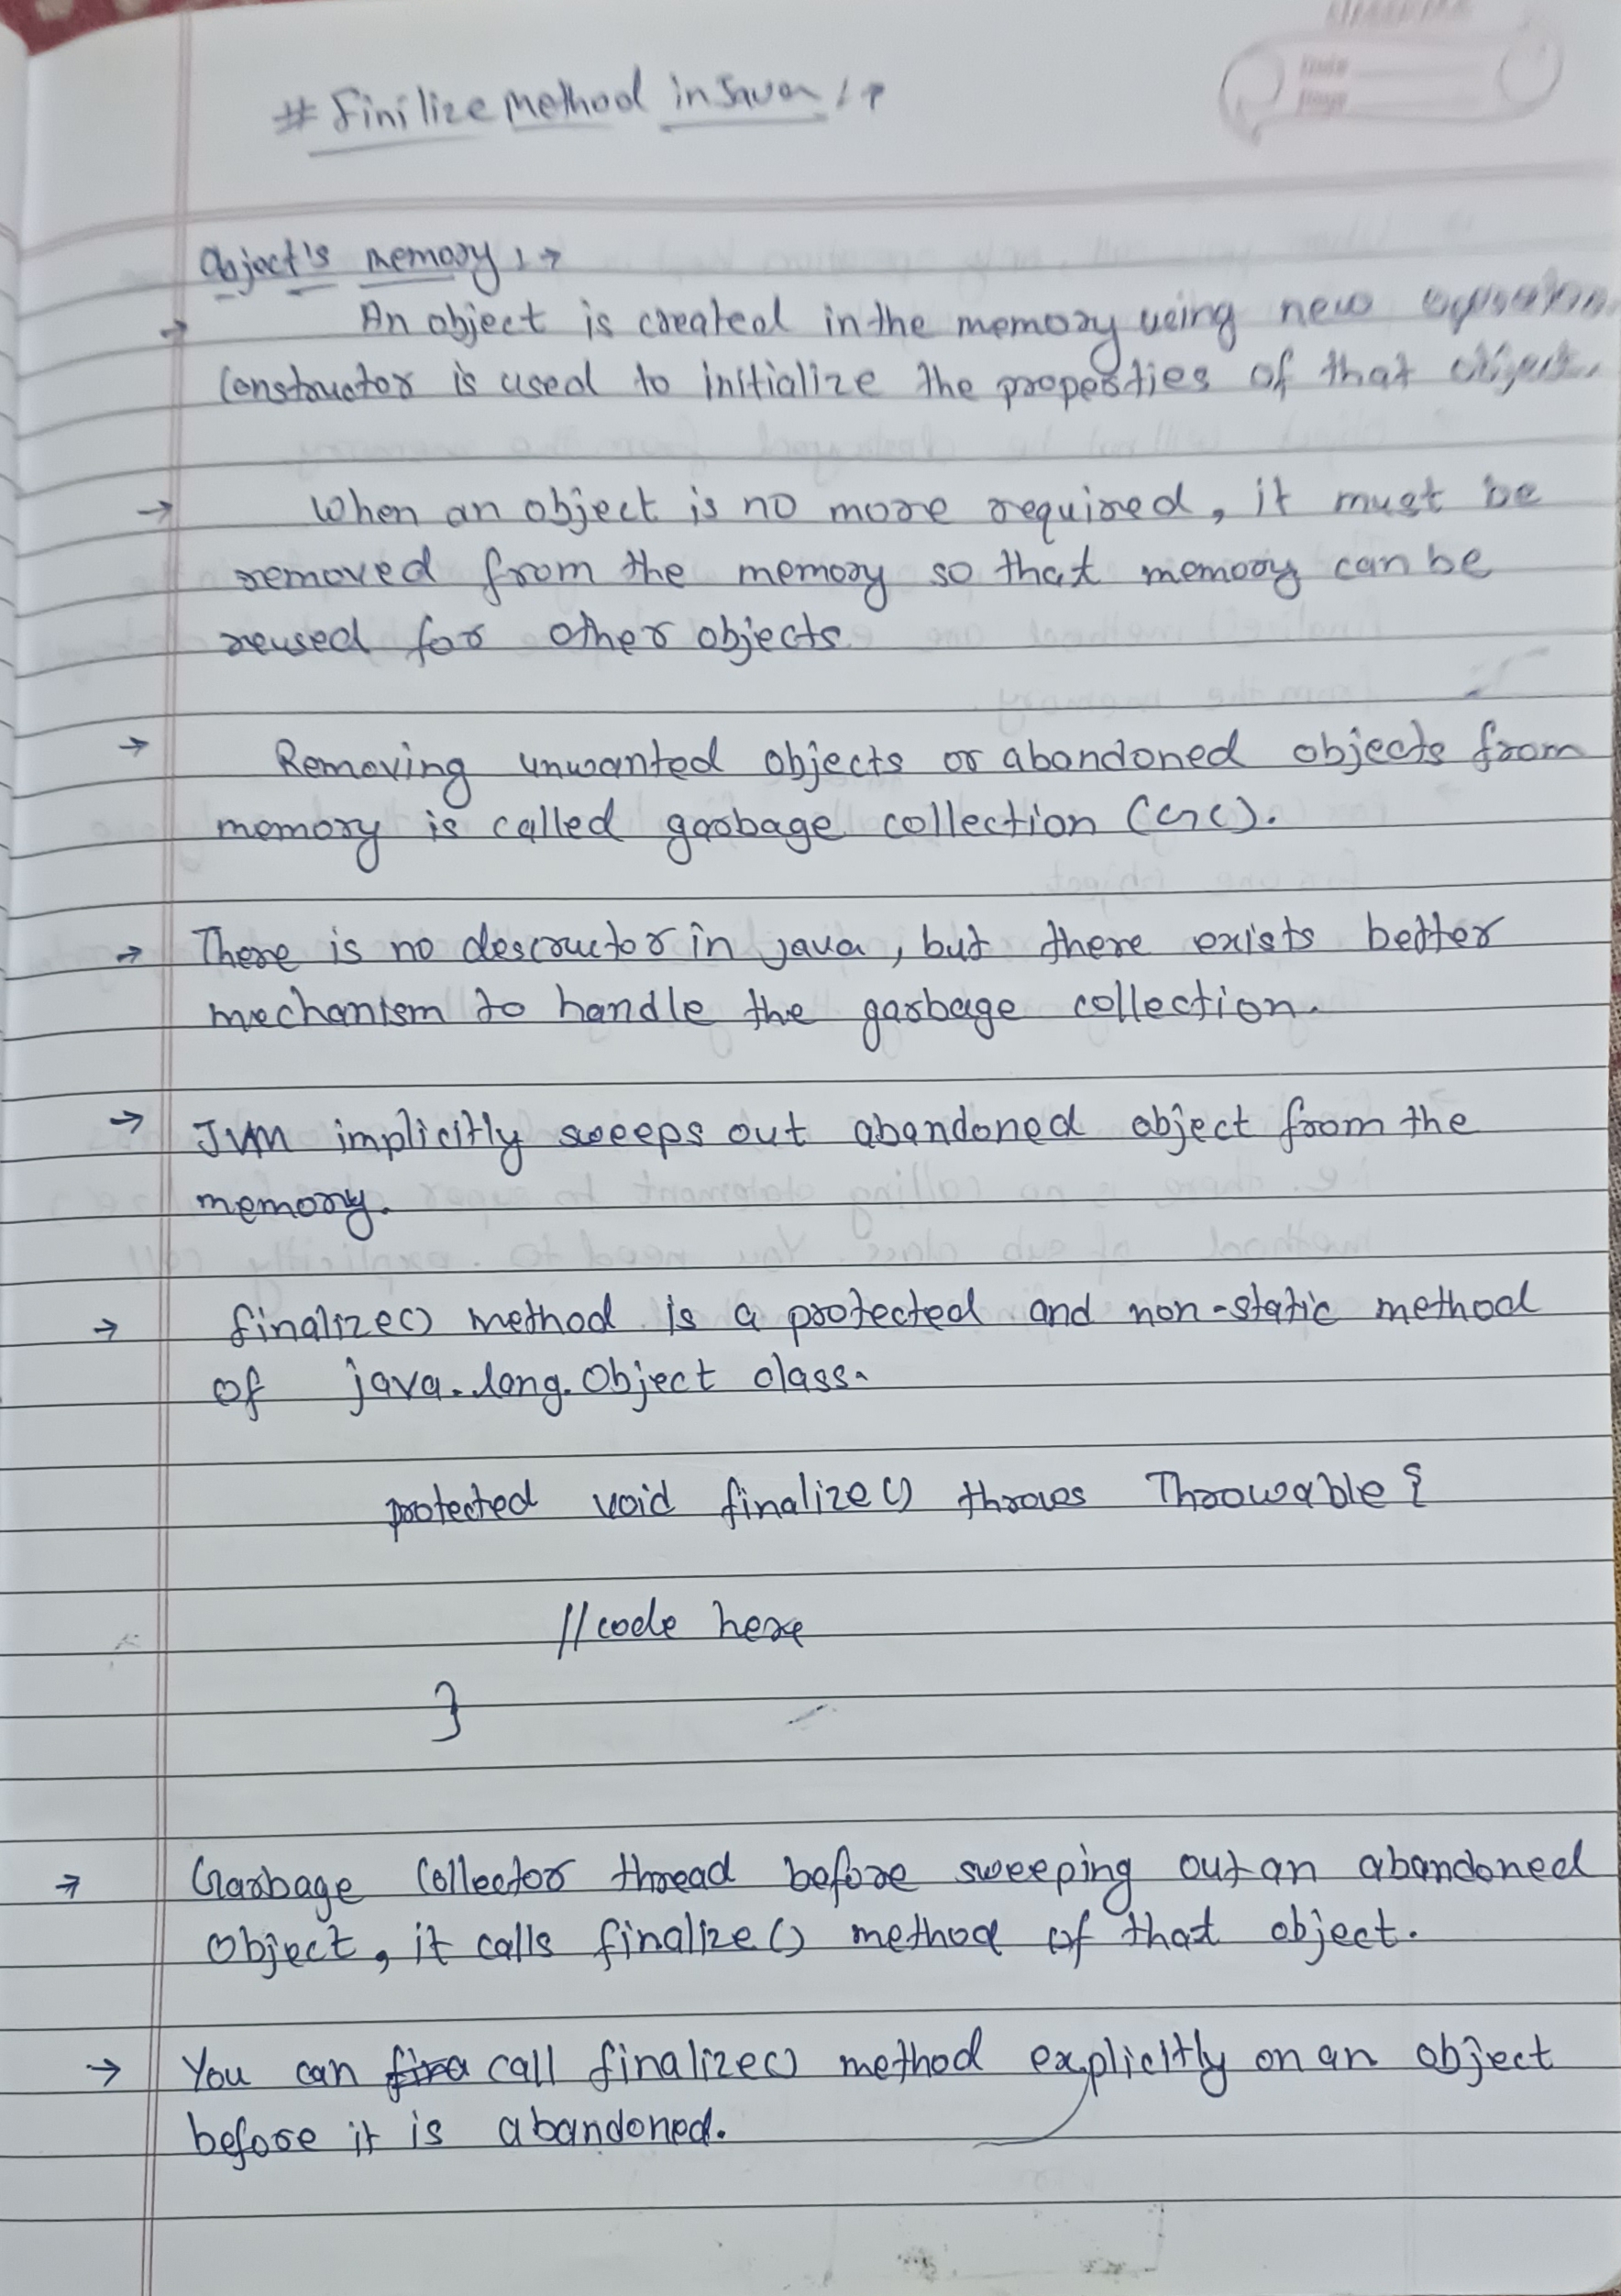 # Finilize Method in Java :→
Object's memory :→
→ An object is created in the memory using new operator.
Constructor is used to initialize the properties of that object.
→ When an object is no more required, it must be
removed from the memory so that memory can be
reused for other objects.
→ Removing unwanted objects or abandoned objects from
memory is called garbage collection (GC).
→ There is no descructor in java, but there exists better
mechanism to handle the garbage collection.
→ JVM implicitly sweeps out abandoned object from the
memory.
→ finalize() method is a protected and non-static method
of java.lang.Object class.
protected void finalize() throws Throwable {
//code here
}
→ Garbage Collector thread before sweeping out an abandoned
object, it calls finalize() method of that object.
→ You can call finalize() method explicitly on an object
before it is abandoned.